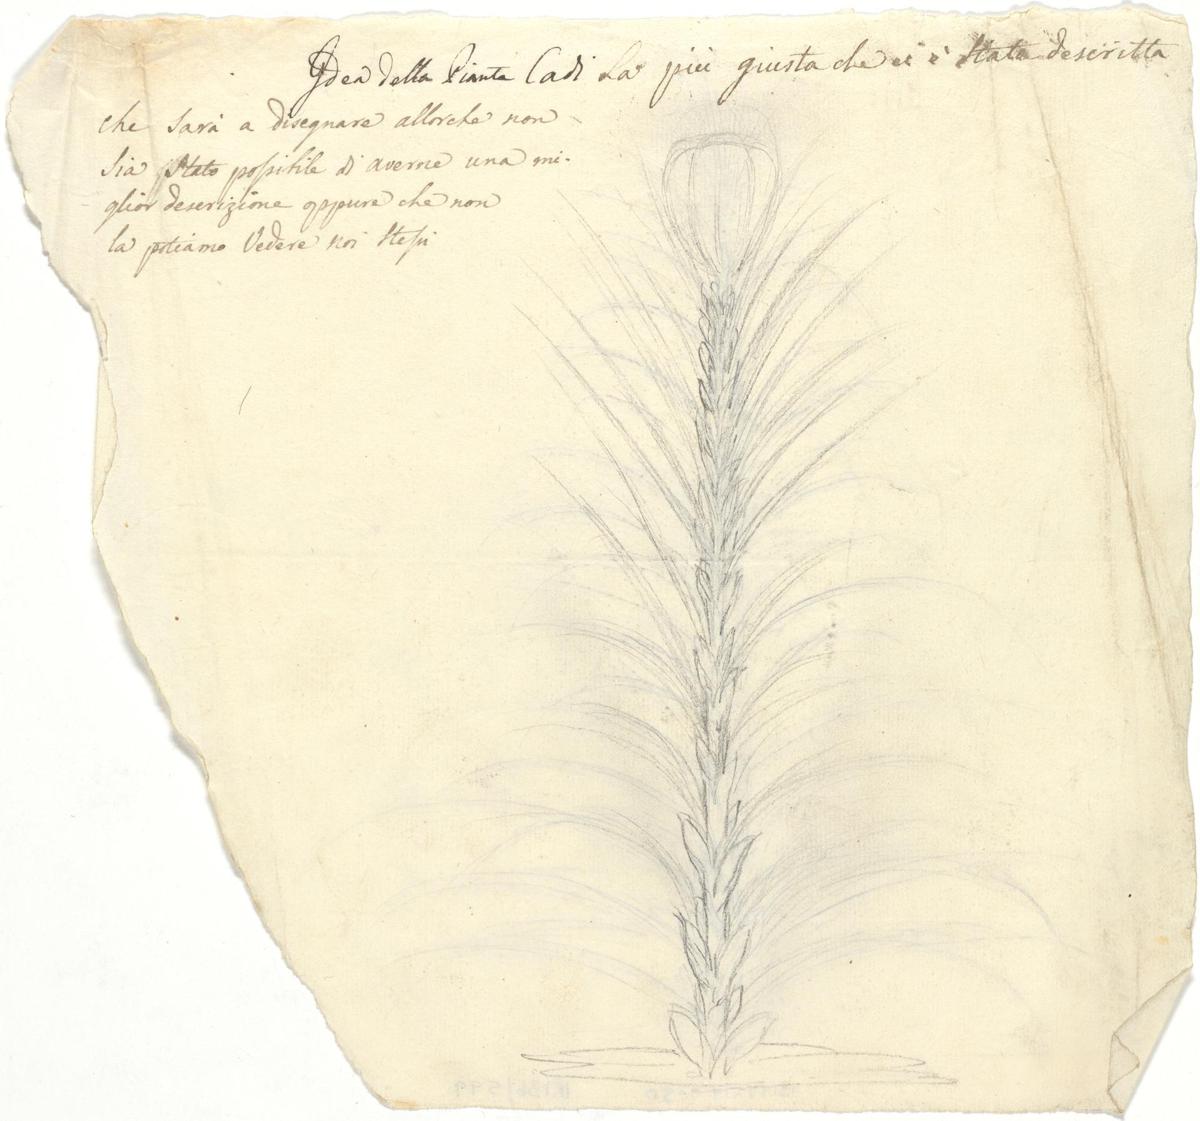 Idea della Pianta Cadi la più giusta che ci è stata descritta
che sarà a disegnare allorche non
sia stato possibile di averne una mi-
glior descrizione oppure che non
la potiamo vedere noi stessi